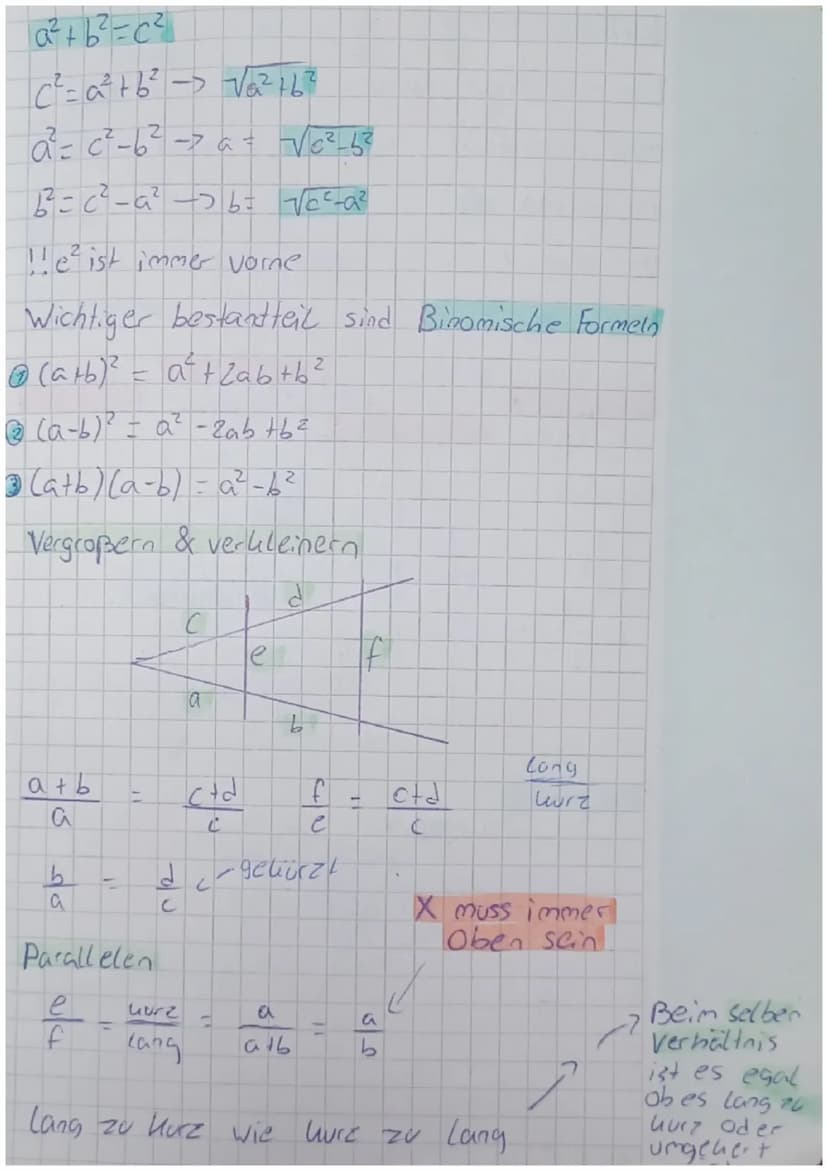 a² + b² = c²
c² = a² + b² → √a² + b²
a² = c² - b² → a = √c² - b²
b² = c² - a² → b = √cᶜ - a²
!! c² ist immer vorne
Wichtiger bestandteil sind Binomische Formeln
① (a+b)² = a² + 2ab + b²
② (a-b)² = a² - 2ab + b²
③ (a+b)(a-b) = a² - b²
Vergroßern & verkleinern
c d
e f
a b
a+b/a = c+d/c f/e = c+d/c lang/kurz
b/a = d/c ← gekürzt
X muss immer
Oben sein
Parallelen
e/f = kurz/lang = a/a+b = a/b
Beim selben
Verhältnis
ist es egal
ob es lang zu
kurz oder
umgekehrt
lang zu kurz wie kurz zu lang